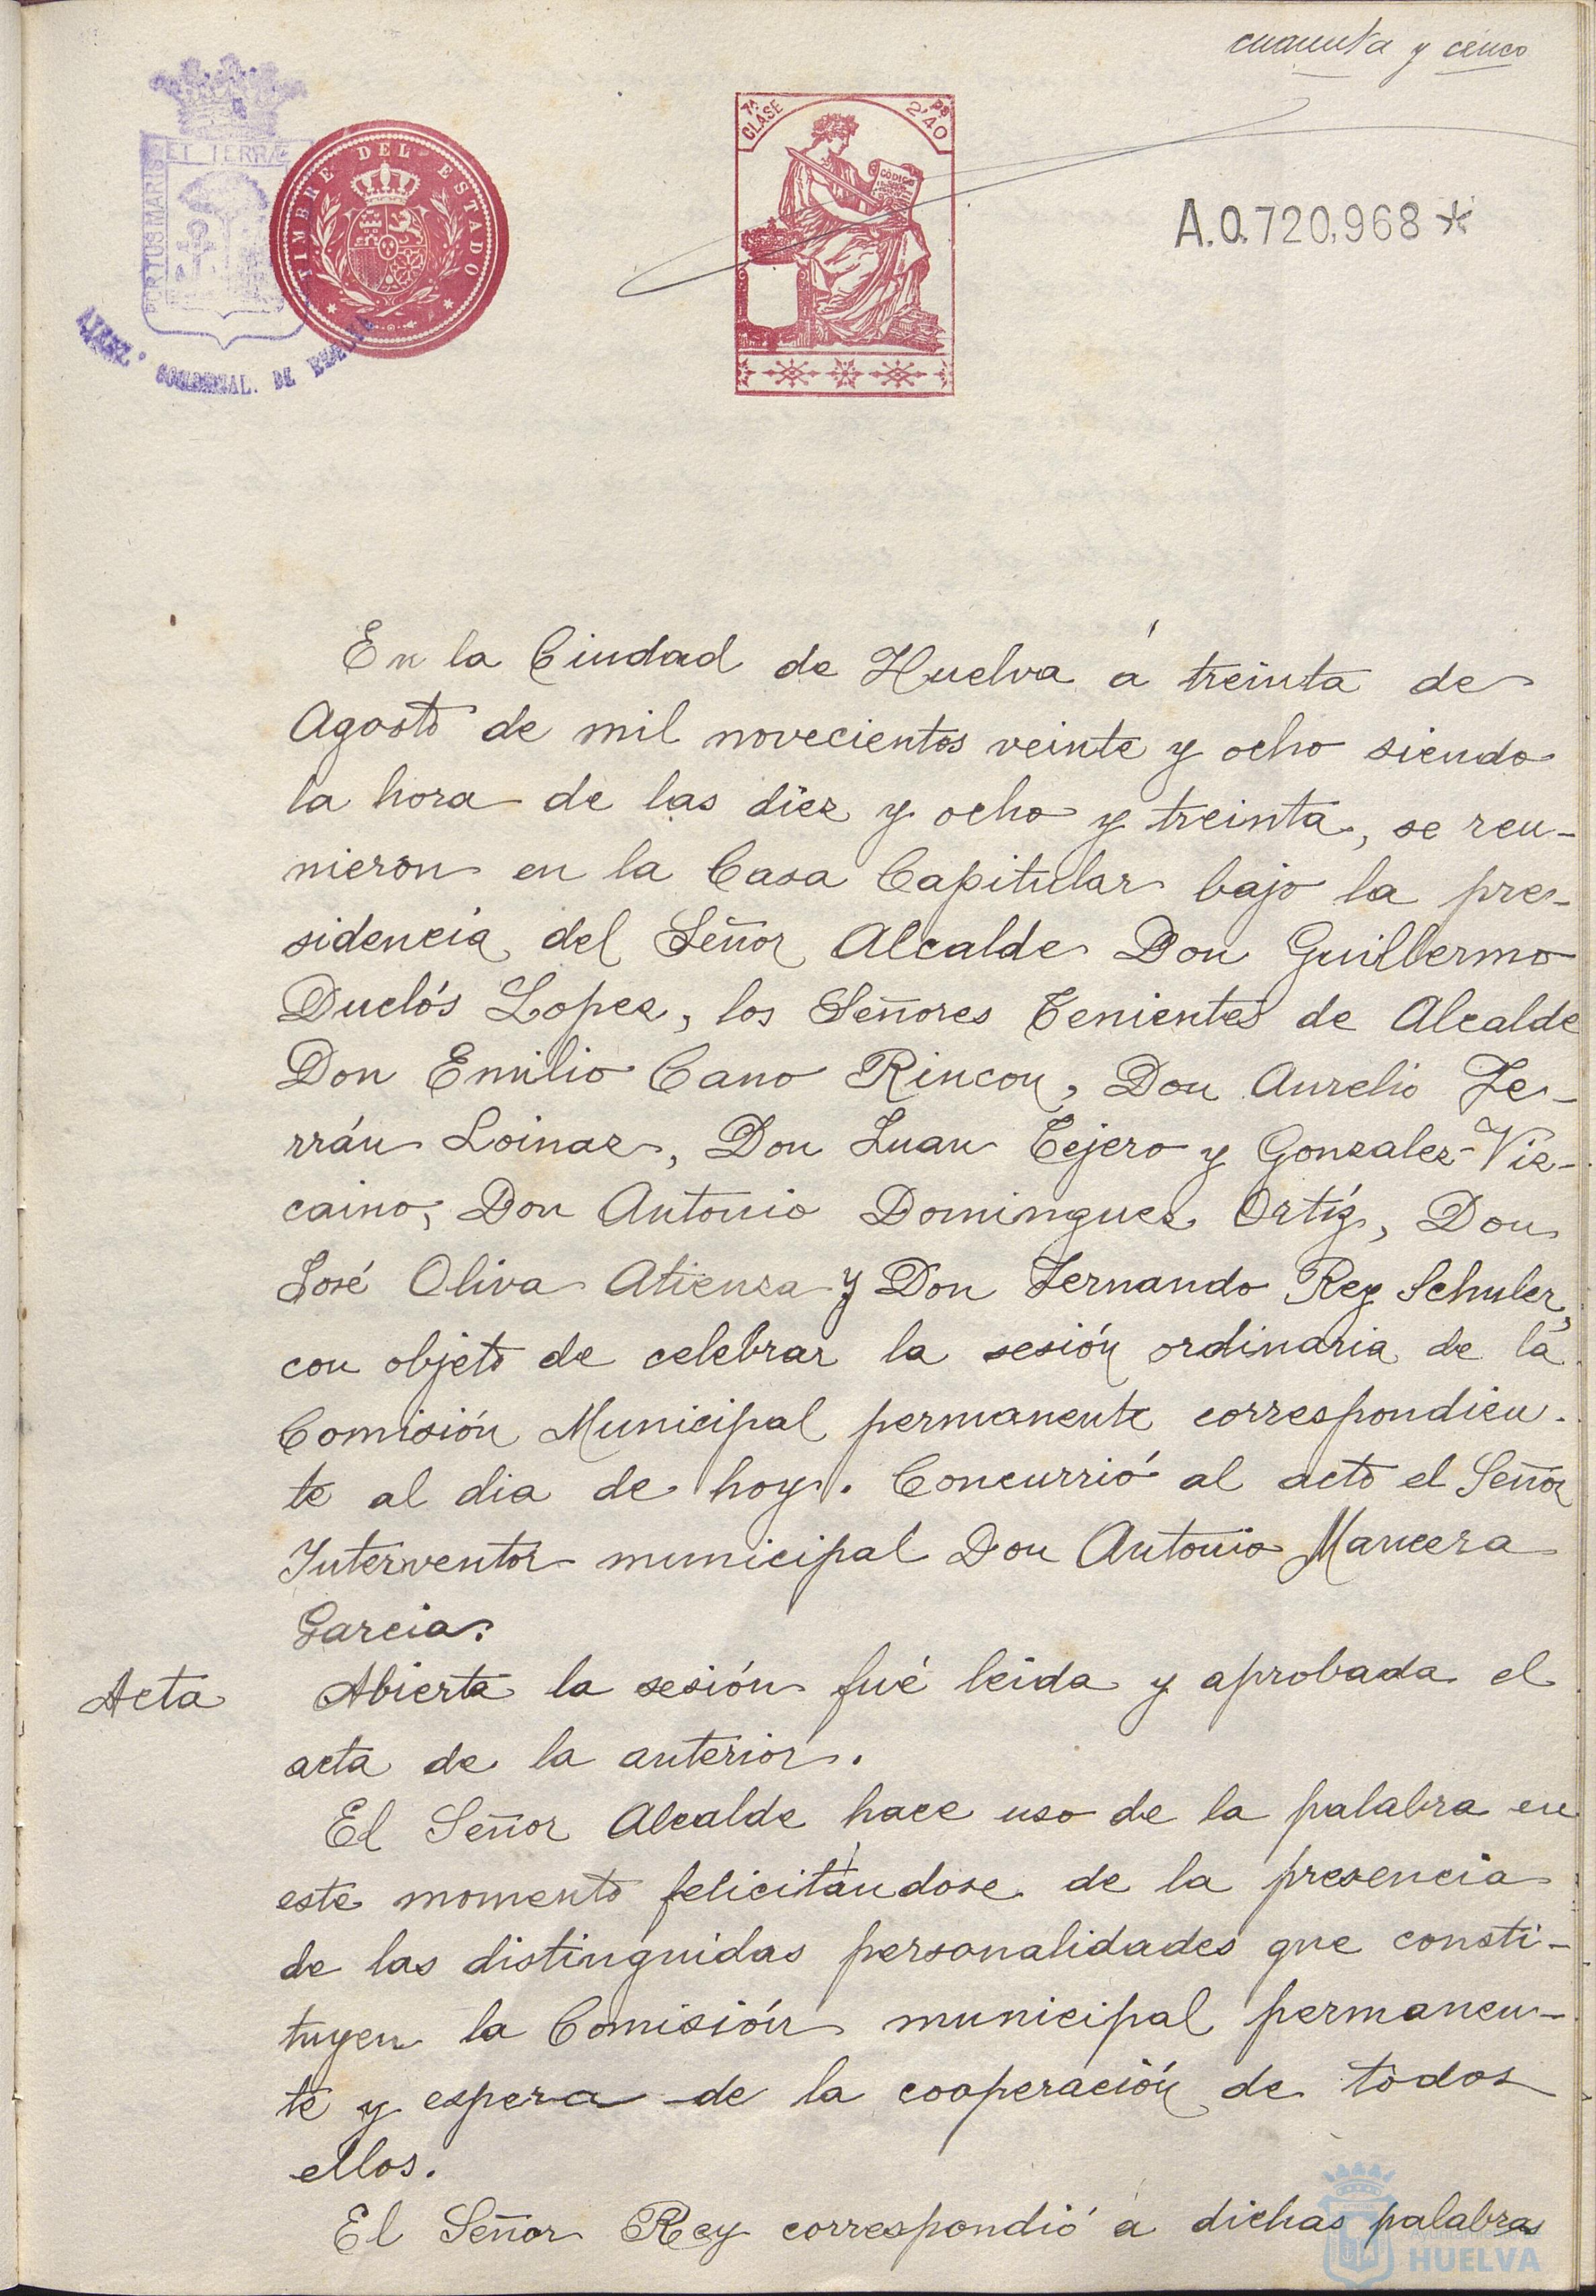 cuarenta y cinco
7ª CLASE
2'40 Ps
CÓDIGO
ET TERRÆ
PORTUS MARIS
TIMBRE DEL ESTADO
A.0.720,968 *
En la Ciudad de Huelva á treinta de
Agosto de mil novecientos veinte y ocho siendo
la hora de las diez y ocho y treinta, se reu-
nieron en la Casa Capitular bajo la pre-
sidencia del Señor Alcalde Don Guillermo
Duclós Lopez, los Señores Tenientes de Alcalde
Don Emilio Cano Rincon, Don Aurelio Fe-
rrán Loinaz, Don Juan Tejero y Gonzalez-Viz-
caino, Don Antonio Dominguez Ortíz, Don
José Oliva Atienza y Don Fernando Rey Schuler,
con objeto de celebrar la sesión ordinaria de la
Comisión Municipal permanente correspondien-
te al dia de hoy. Concurrió al acto el Señor
Interventor municipal Don Antonio Mancera
Garcia.
Acta Abierta la sesión fué leida y aprobada el
acta de la anterior.
El Señor Alcalde hace uso de la palabra en
este momento felicitándose de la presencia
de las distinguidas personalidades que consti-
tuyen la Comisión municipal permanen-
te y espera de la cooperación de todos
ellos.
El Señor Rey correspondió á dichas palabras
HUELVA